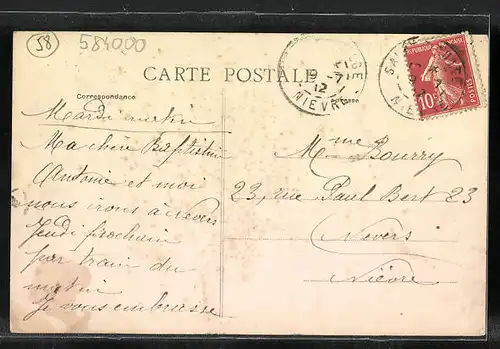 58
584000
CARTE POSTALE
Correspondance
Adresse
19
12
NIEVRE
RÉPUBLIQUE FRANÇAISE
10
POSTES
Mardi matin
Ma chère Baptistin
Antoine et moi
nous irons à Nevers
Jeudi prochain
par train du
matin
Je vous embrasse
Mme Bourry
23, rue Paul Bert 23
Nevers
Nièvre